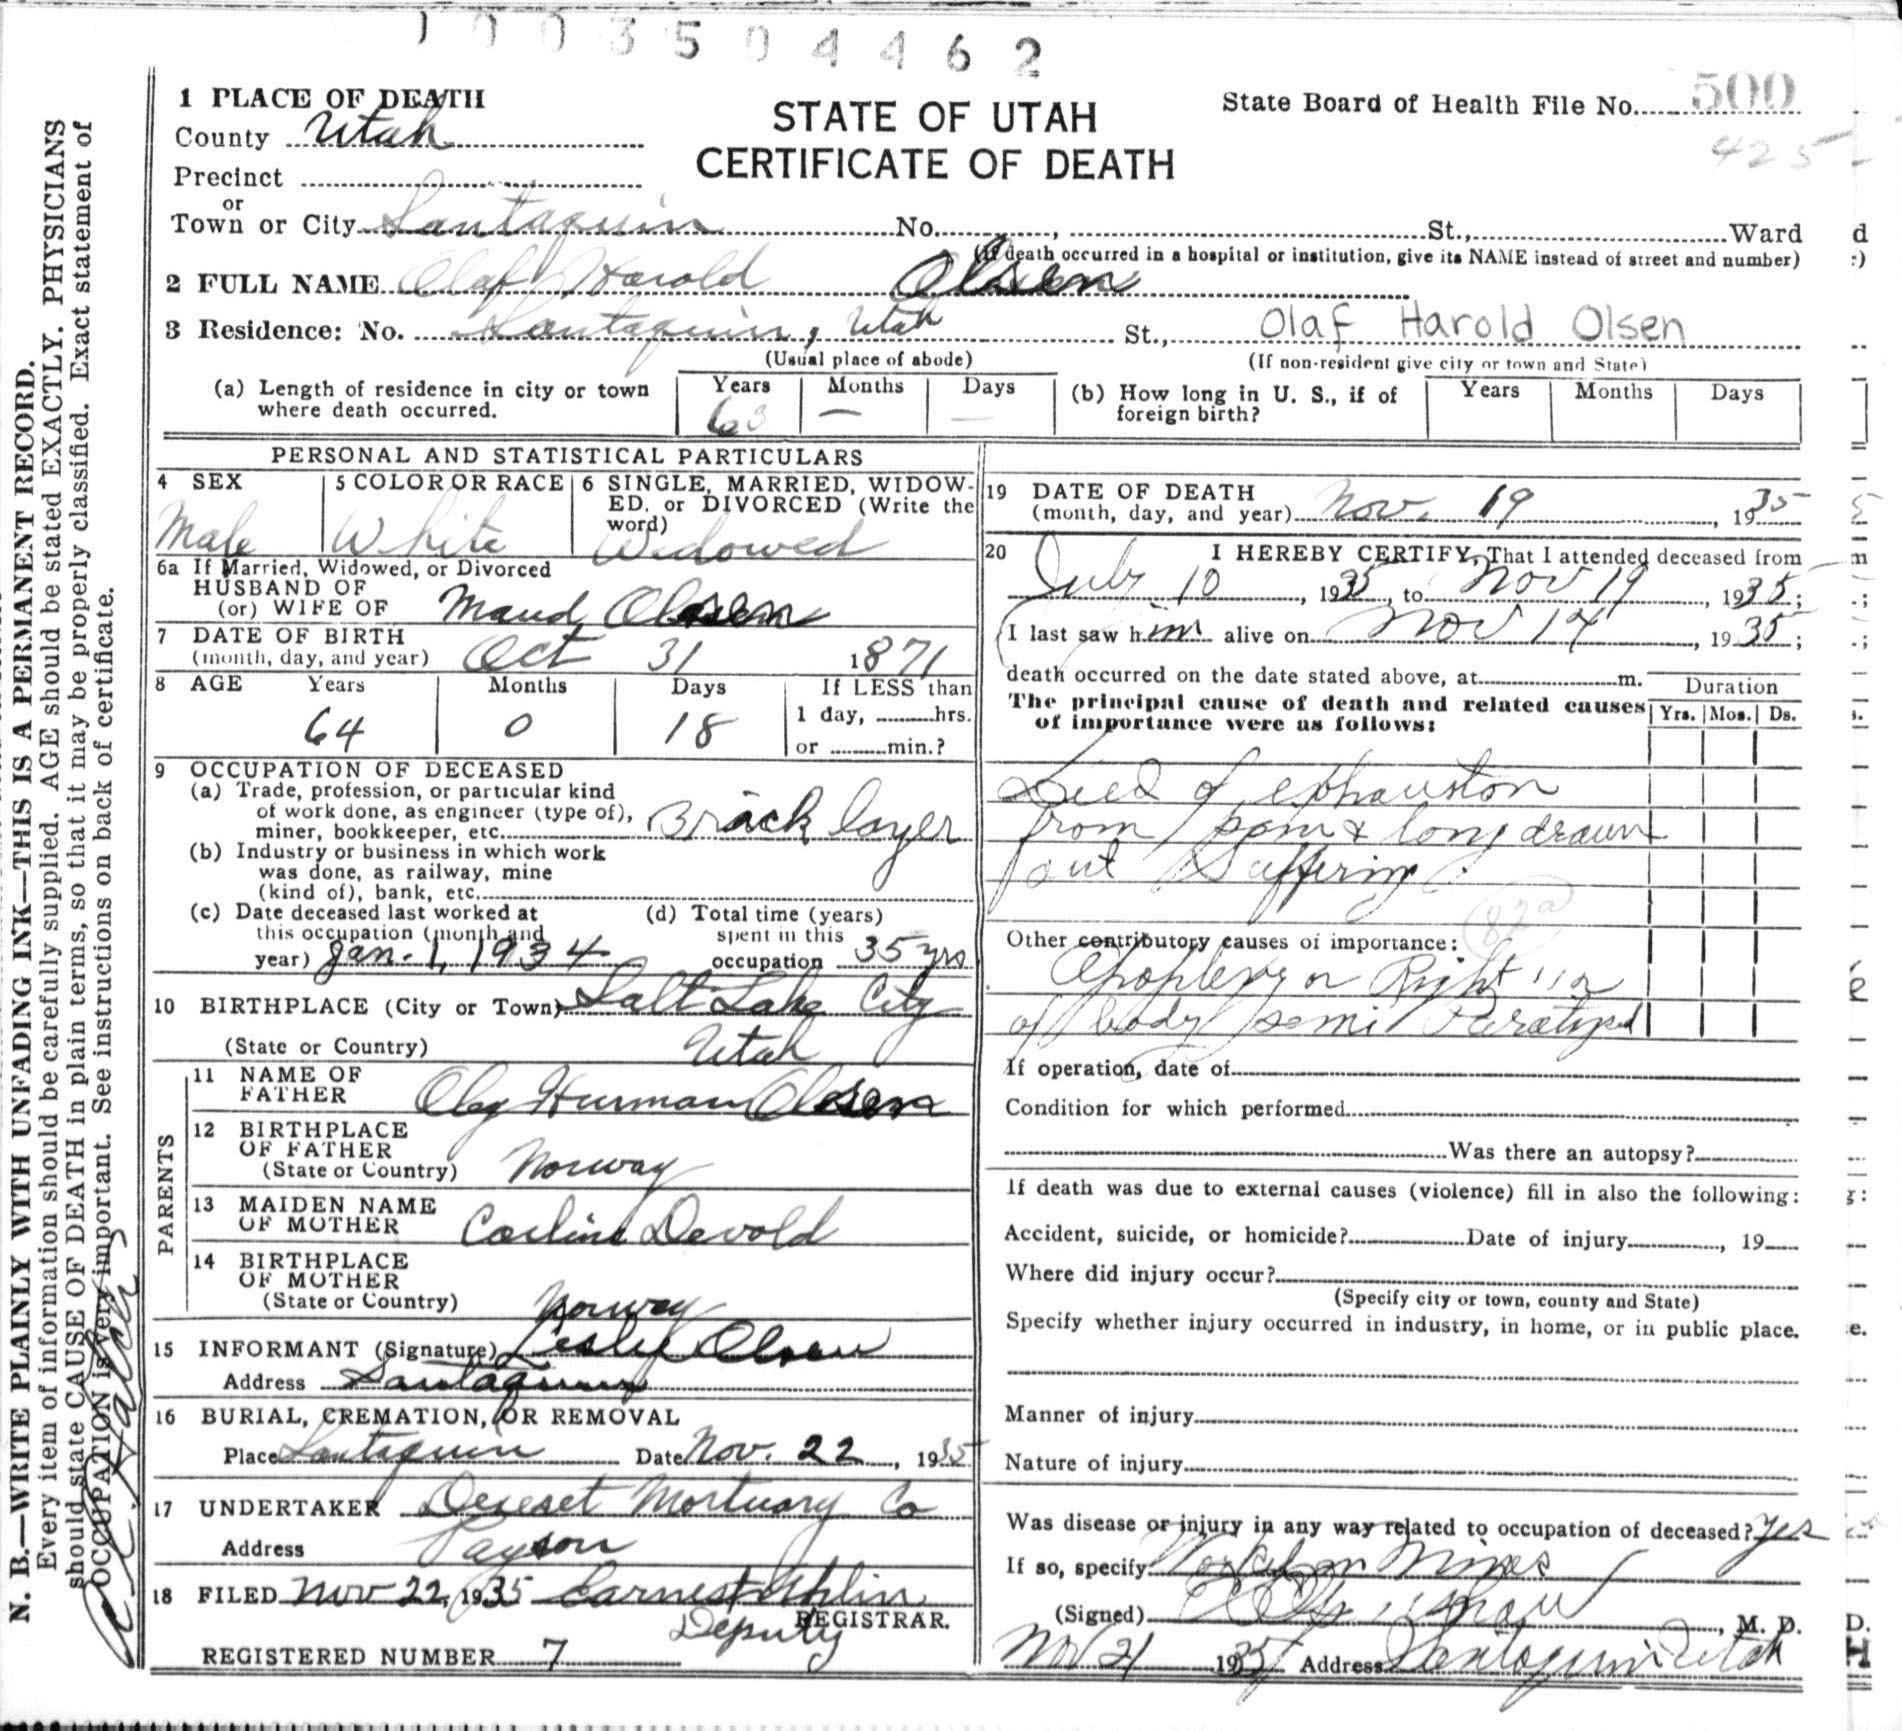 1003504462
1 PLACE OF DEATH
STATE OF UTAH
CERTIFICATE OF DEATH
State Board of Health File No. 500
425
County Utah
Precinct
or
Town or City Santaquin No. , St., Ward
(If death occurred in a hospital or institution, give its NAME instead of street and number)
2 FULL NAME Olaf Harold Olsen
3 Residence: No. Santaquin, Utah St., Olaf Harold Olsen
(Usual place of abode) (If non-resident give city or town and State)
(a) Length of residence in city or town where death occurred. Years 63 Months — Days —
(b) How long in U. S., if of foreign birth? Years Months Days
PERSONAL AND STATISTICAL PARTICULARS
4 SEX Male
5 COLOR OR RACE White
6 SINGLE, MARRIED, WIDOW-
ED, or DIVORCED (Write the
word) Widowed
6a If Married, Widowed, or Divorced
HUSBAND OF
(or) WIFE OF Maud Olsen
7 DATE OF BIRTH
(month, day, and year) Oct 31 1871
8 AGE Years Months Days If LESS than
64 0 18 1 day, hrs.
or min.?
9 OCCUPATION OF DECEASED
(a) Trade, profession, or particular kind
of work done, as engineer (type of),
miner, bookkeeper, etc. Brick layer
(b) Industry or business in which work
was done, as railway, mine
(kind of), bank, etc.
(c) Date deceased last worked at
this occupation (month and
year) Jan. 1, 1934
(d) Total time (years)
spent in this
occupation 35 yrs
10 BIRTHPLACE (City or Town) Salt Lake City
(State or Country) Utah
PARENTS
11 NAME OF
FATHER Olsen
12 BIRTHPLACE
OF FATHER
(State or Country) Norway
13 MAIDEN NAME
OF MOTHER Devold
14 BIRTHPLACE
OF MOTHER
(State or Country) Norway
15 INFORMANT (Signature) Leslie Olsen
Address Santaquin
16 BURIAL, CREMATION, OR REMOVAL
Place Santaquin Date Nov. 22, 1935
17 UNDERTAKER Deseret Mortuary Co
Address Payson
18 FILED Nov 22, 1935
Deputy REGISTRAR.
REGISTERED NUMBER 7
19 DATE OF DEATH
(month, day, and year) Nov. 19, 1935
20 I HEREBY CERTIFY, That I attended deceased from
July 10, 1935, to Nov 19, 1935;
I last saw him alive on Nov 14, 1935;
death occurred on the date stated above, at m.
The principal cause of death and related causes
of importance were as follows:
Duration
Yrs. Mos. Ds.
Died of exhaustion
from pain & long drawn
out Suffering.
82a
Other contributory causes of importance:
Apoplexy Right
of body semi Paralyzed
If operation, date of
Condition for which performed
Was there an autopsy?
If death was due to external causes (violence) fill in also the following:
Accident, suicide, or homicide? Date of injury , 19
Where did injury occur?
(Specify city or town, county and State)
Specify whether injury occurred in industry, in home, or in public place.
Manner of injury
Nature of injury
Was disease or injury in any way related to occupation of deceased? Yes
If so, specify Mines
(Signed) , M. D.
Nov 21 1935 Address Santaquin Utah
N. B.—WRITE PLAINLY WITH UNFADING INK—THIS IS A PERMANENT RECORD.
Every item of information should be carefully supplied. AGE should be stated EXACTLY. PHYSICIANS
should state CAUSE OF DEATH in plain terms, so that it may be properly classified. Exact statement of
OCCUPATION is very important. See instructions on back of certificate.